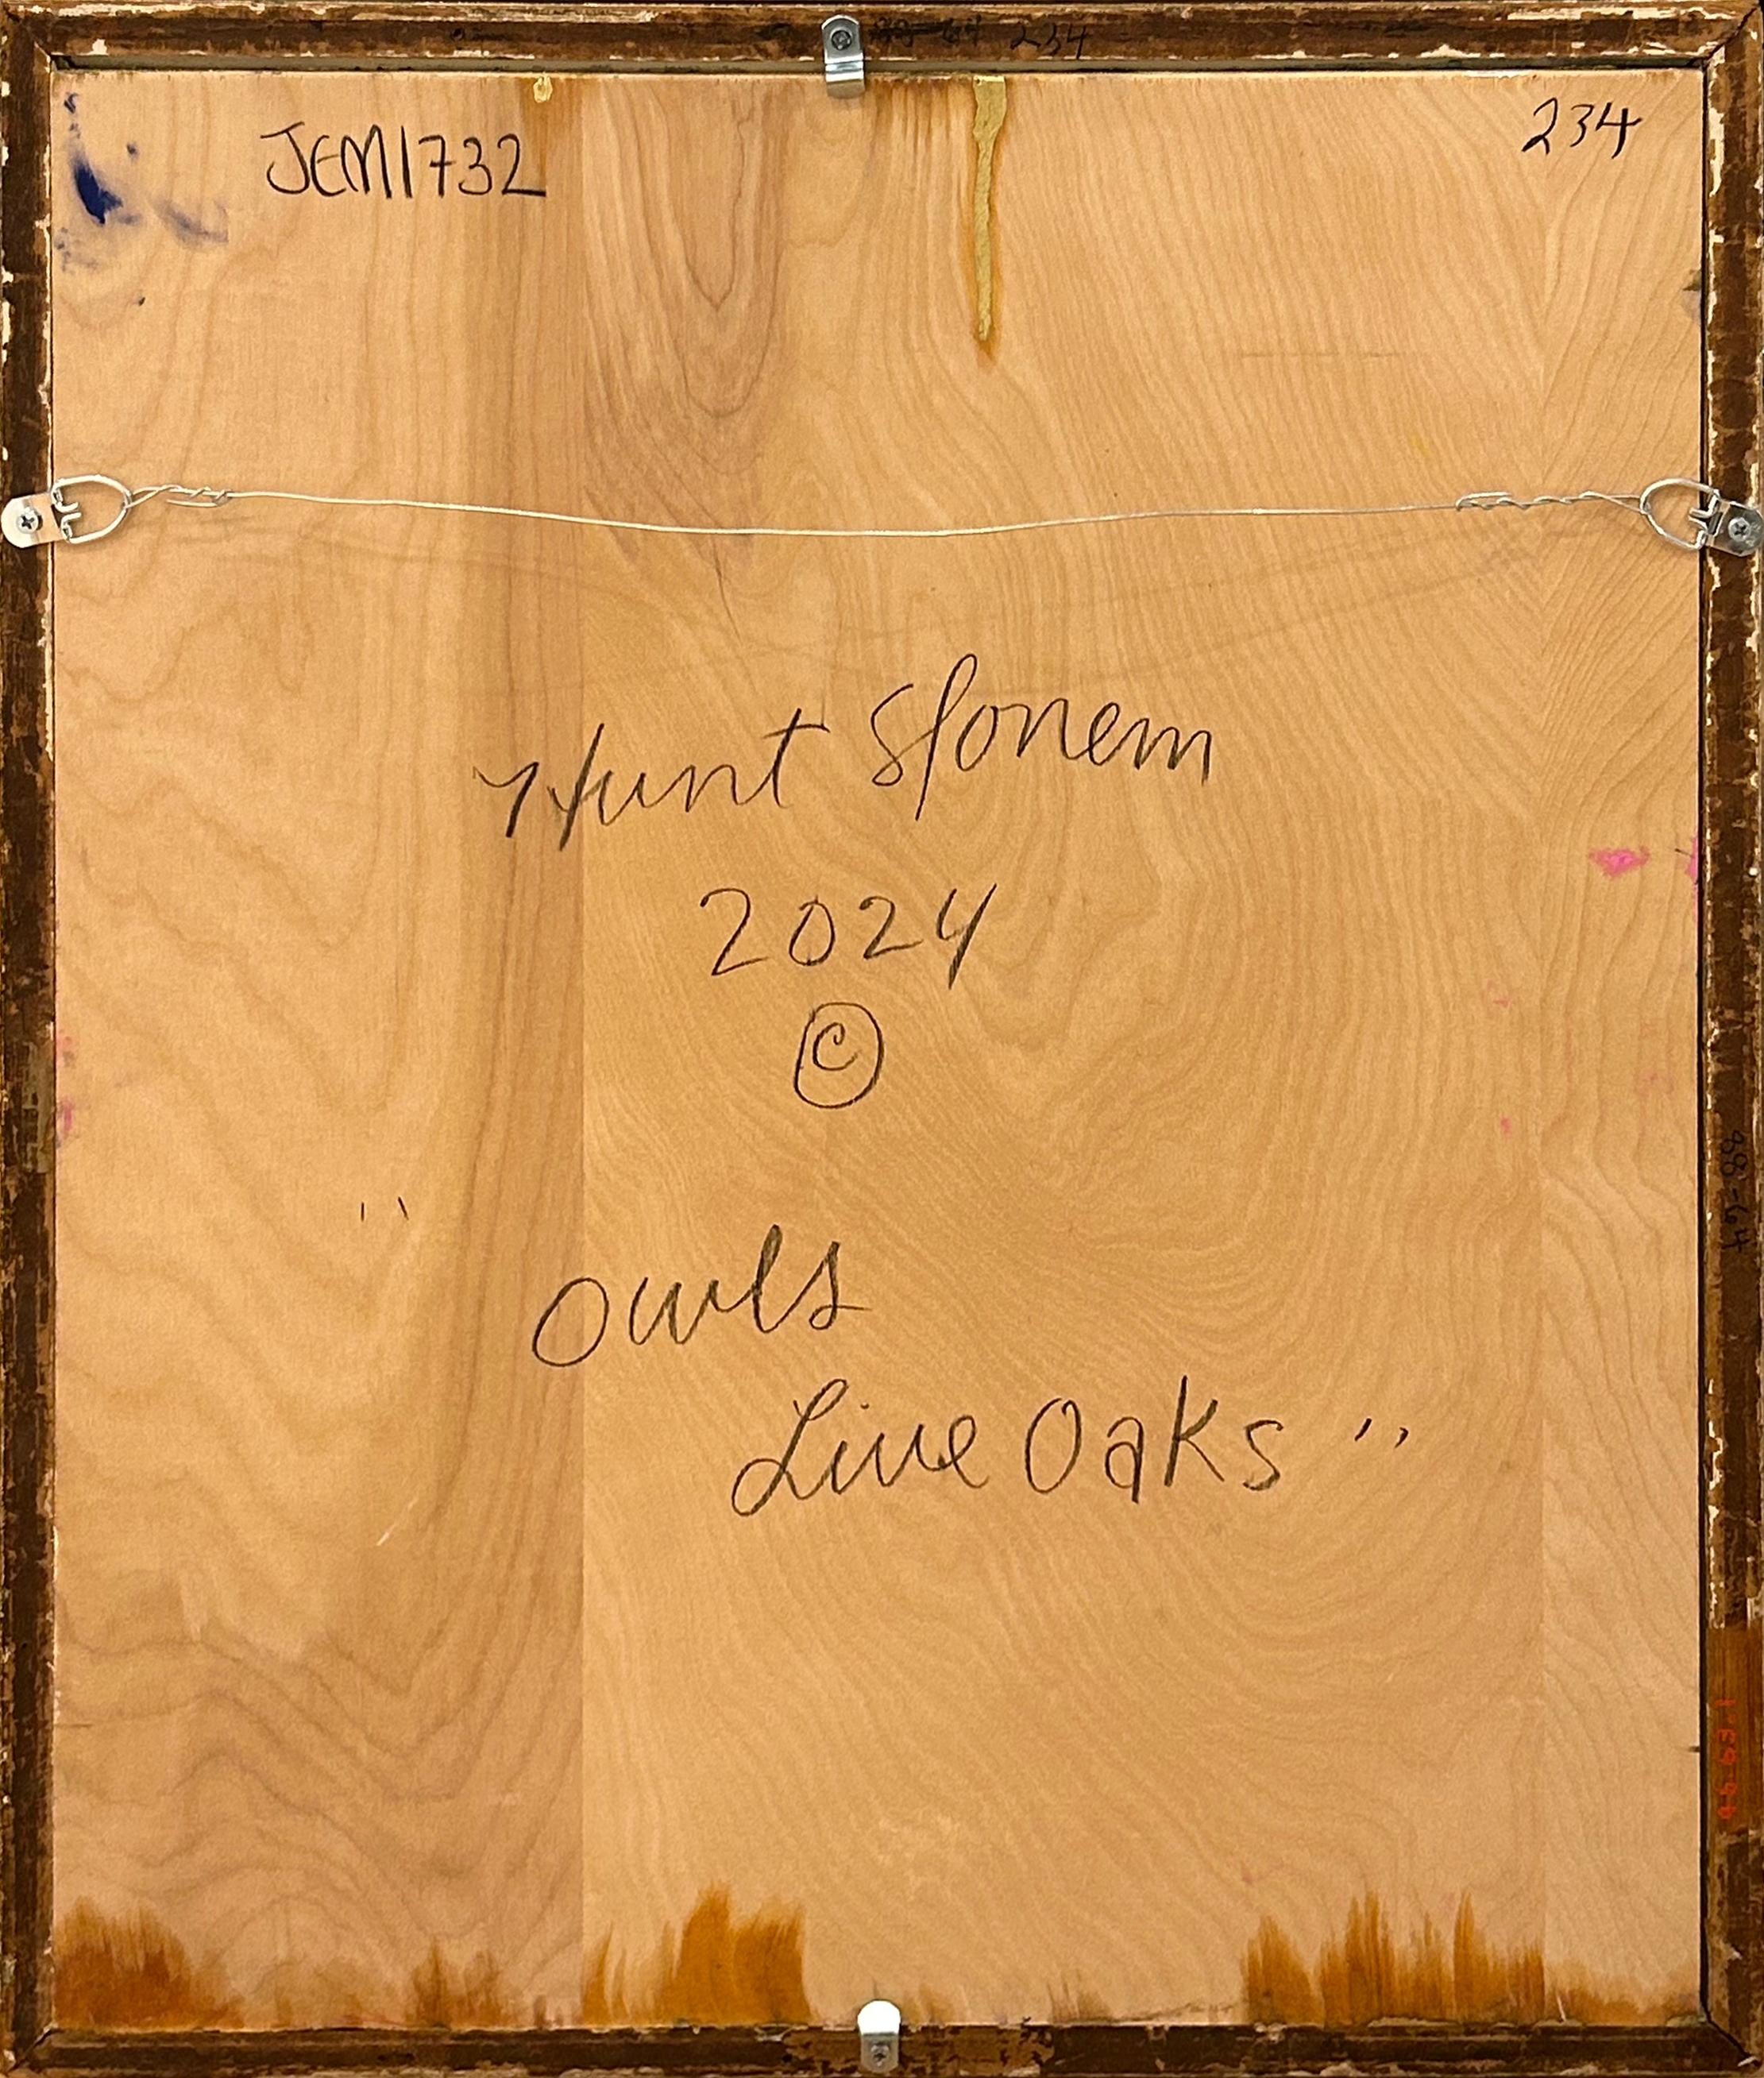 234
JEM1732
234
Hunt Slonem
2024
©
"Owls
Live Oaks"